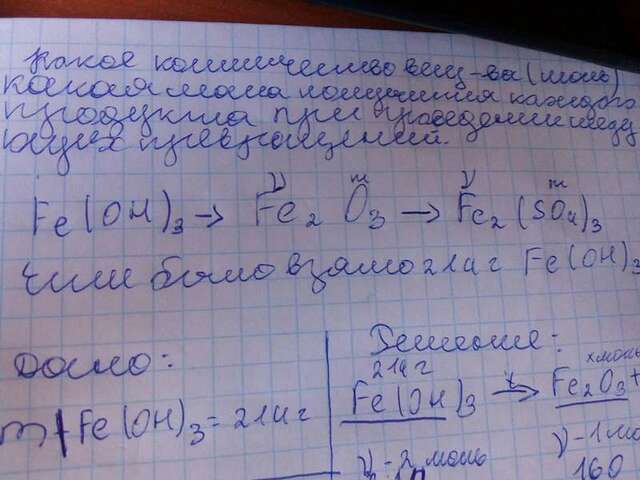 Какое количество вещ-ва (моль)
какая масса получится каждого
продукта при проведении следу
ющих превращений.
ν m ν m
Fe(OH)3 → Fe2O3 → Fe2(SO4)3
Если было взято 214 г Fe(OH)3
Дано:
m(Fe(OH)3 = 214 г
Решение:
214 г х моль
Fe(OH)3 t→ Fe2O3 +
ν - 2 моль ν - 1 мо
160